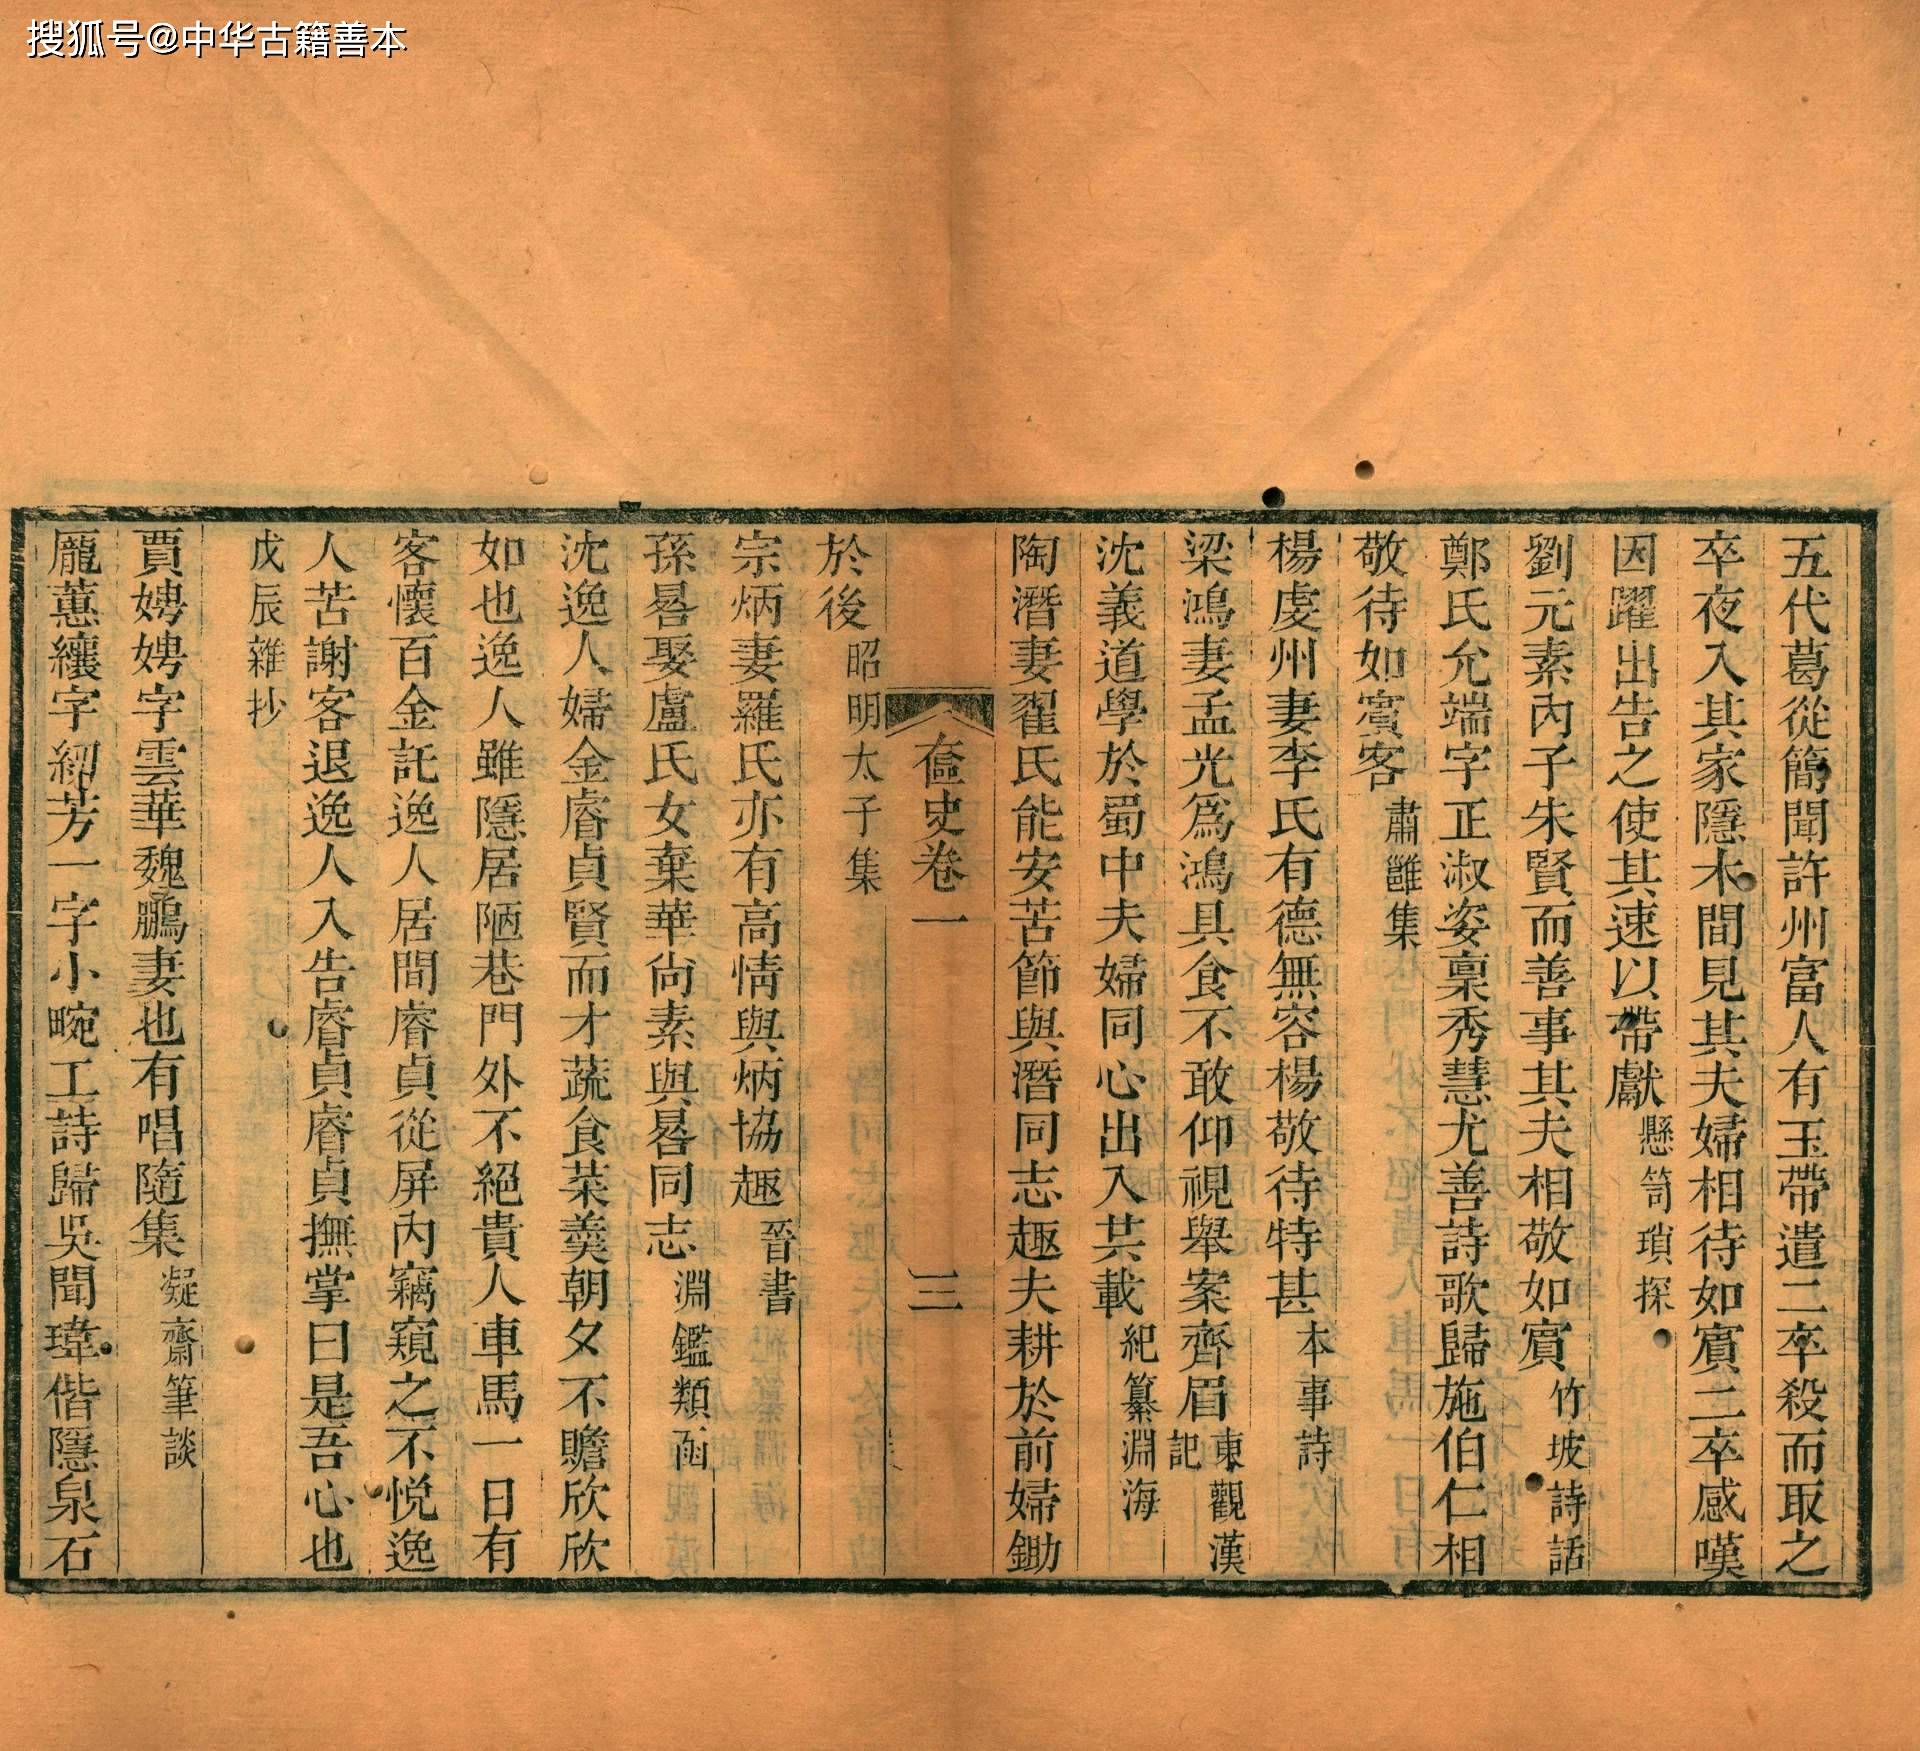 搜狐号@中华古籍善本
五代葛從簡聞許州富人有玉帶遣二卒殺而取之
卒夜入其家隱木間見其夫婦相待如賓二卒感嘆
因躍出告之使其速以帶獻懸笥瑣探
劉元素內子朱賢而善事其夫相敬如賓竹坡詩話
鄭氏允端字正淑姿稟秀慧尤善詩歌歸施伯仁相
敬待如賓客肅雝集
楊虔州妻李氏有德無容楊敬待特甚本事詩
梁鴻妻孟光爲鴻具食不敢仰視舉案齊眉東觀漢記
沈義道學於蜀中夫婦同心出入共載紀纂淵海
陶潛妻翟氏能安苦節與潛同志趣夫耕於前婦鋤
奩史卷一 三
於後昭明太子集
宗炳妻羅氏亦有高情與炳協趣晉書
孫晷娶盧氏女棄華尚素與晷同志淵鑑類函
沈逸人婦金睿貞賢而才蔬食菜羹朝夕不贍欣欣
如也逸人雖隱居陋巷門外不絕貴人車馬一日有
客懷百金託逸人居間睿貞從屏內竊窺之不悅逸
人苦謝客退逸人入告睿貞睿貞撫掌曰是吾心也
戊辰雜抄
賈娉娉字雲華魏鵬妻也有唱隨集凝齋筆談
龐蕙纕字紉芳一字小畹工詩歸吳聞瑋偕隱泉石